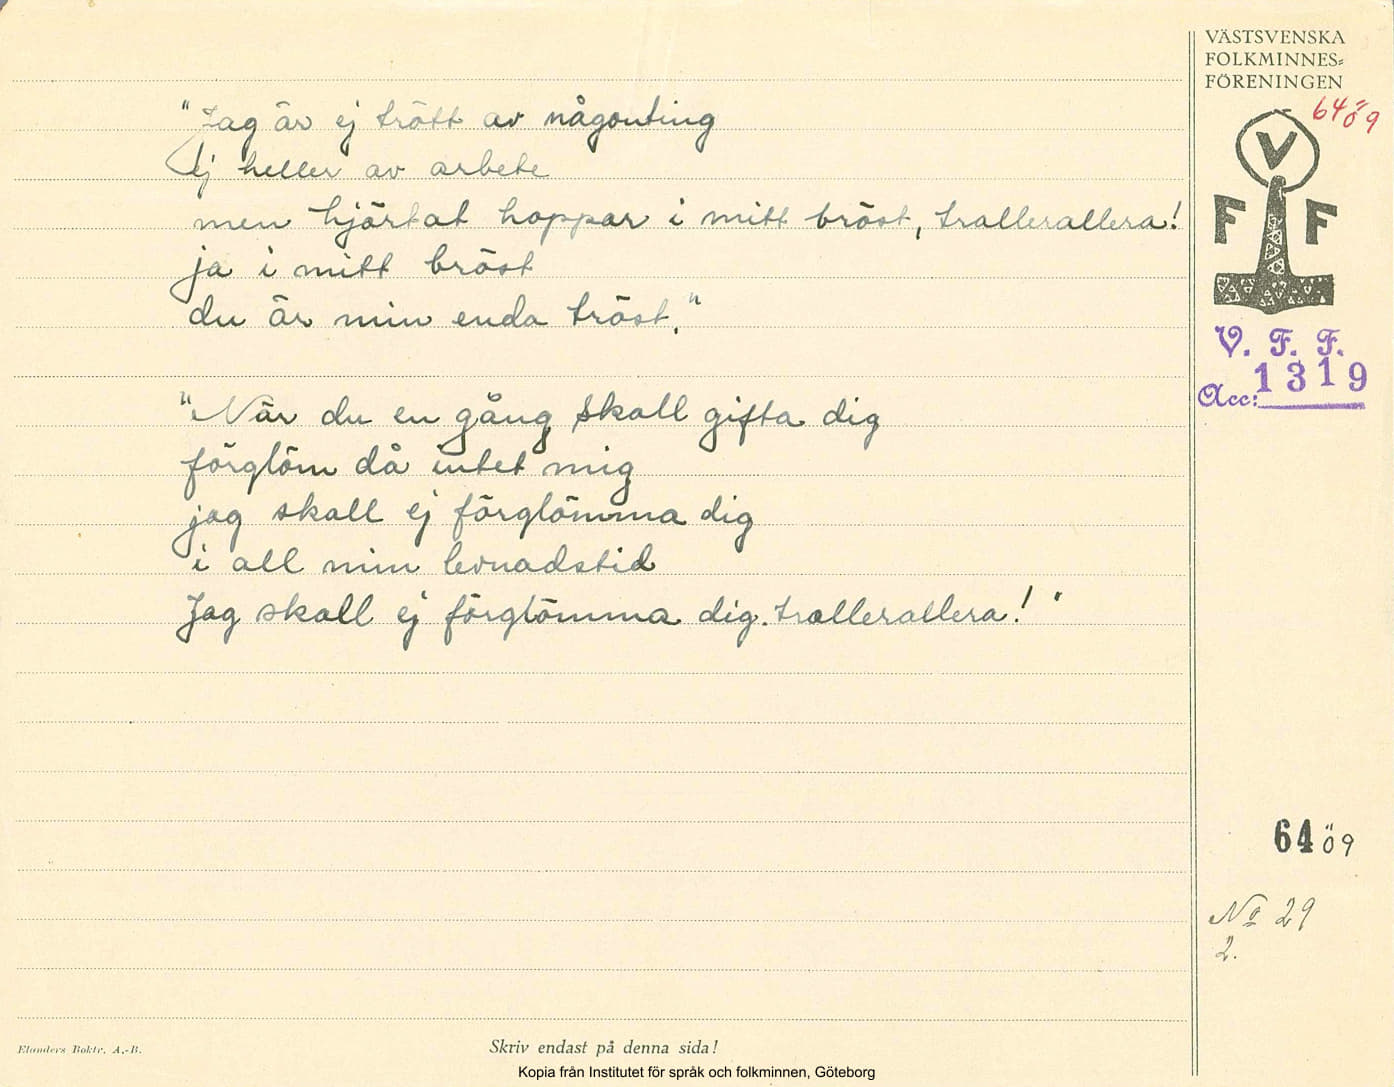 "Jag är ej trött av någonting
Ej heller av arbete
men hjärtat hoppar i mitt bröst, trallerallera!
ja i mitt bröst
du är min enda tröst."
"När du en gång skall gifta dig
förglöm då intet mig
jag skall ej förglömma dig
i all min levnadstid
Jag skall ej förglömma dig. trallerallera!"
VÄSTSVENSKA
FOLKMINNES-
FÖRENINGEN
64 ö 9
V
F F
V. F. F.
Acc: 1319
64 ö 9
No 29
2.
Elanders Boktr. A.-B.
Skriv endast på denna sida!
Kopia från Institutet för språk och folkminnen, Göteborg